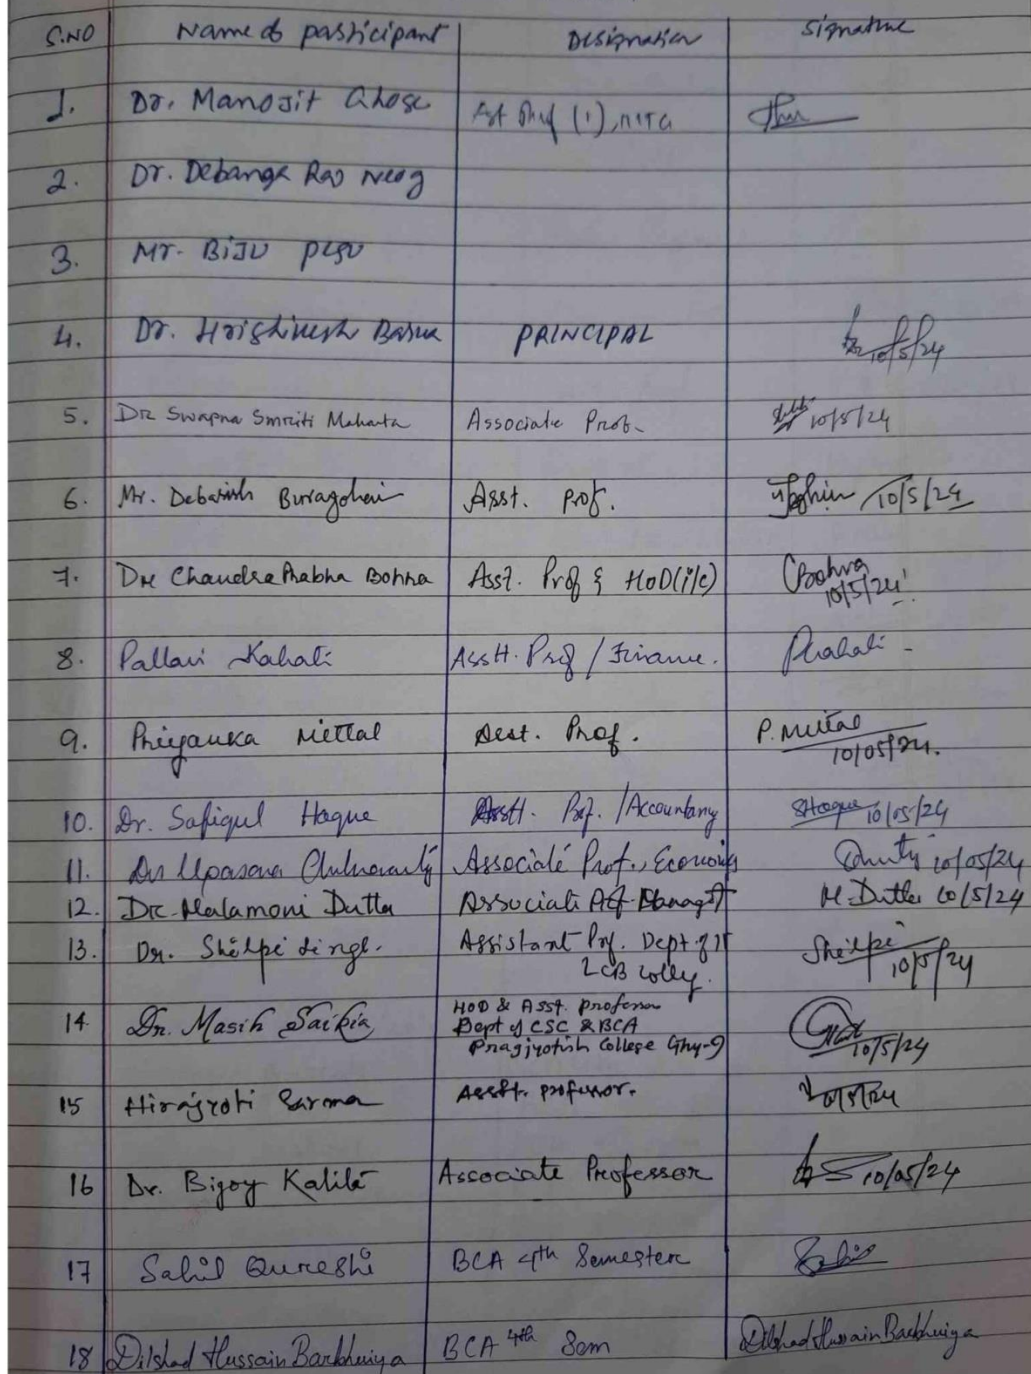 S.NO Name of participant Designation Signature
1. Dr. Manojit Ghose Ast Prof (1), IIITG
2. Dr. Debanga Raj Neog
3. Mr. BIJU
4. Dr. Hrishikesh Barua PRINCIPAL 10/5/24
5. DR Swapna Smriti Mahanta Associate Prof. 10/5/24
6. Mr. Debasish Buragohain Asst. prof. 10/5/24
7. Dr Chandra Prabha Bohra Asst. Prof & HOD(i/c) CBohra
10/5/24
8. Pallavi Kahati Asstt. Prof / Finance. PKahati
9. Priyanka Mittal Asst. Prof. P. Mittal
10/05/24.
10. Dr. Safiqul Haque Asstt. Prof. /Accountancy SHaque 10/05/24
11. Dr Upasana Chakravarty Associate Prof., Economics 10/05/24
12. Dr. Malamoni Dutta Associate Prof. M. Dutta 10/5/24
13. Dr. Shilpi Assistant Prof. Dept of IT Shilpi
LCB College. 10/5/24
14 Dr. Masih Saikia HOD & Asst. Professor
Dept of CSC & BCA
Pragjyotish College Ghy-9 10/5/24
15 Hirajyoti Sarma Asstt. professor. 10/5/24
16 Dr. Bijoy Kalita Associate Professor 10/05/24
17 Sahil Qureshi BCA 4th Semester Sahil
18 Dilshad Hussain Barbhuiya BCA 4th Sem Dilshad Hussain Barbhuiya